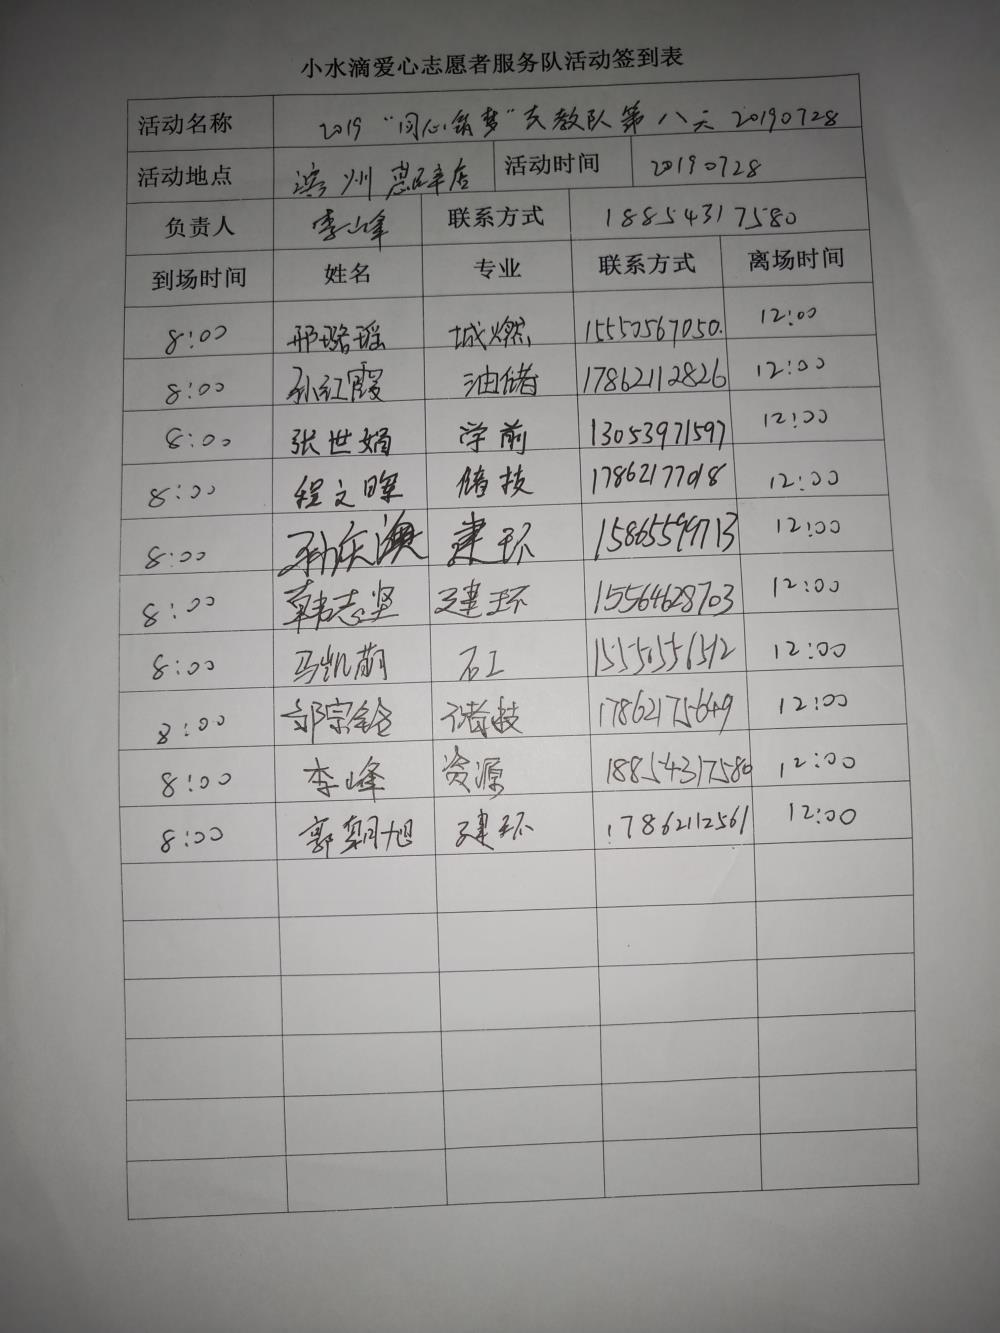 小水滴爱心志愿者服务队活动签到表
活动名称 2019 “同心筑梦”支教队第八天 20190728
活动地点 滨州惠民辛店 活动时间 20190728
负责人 李峰 联系方式 18854317580
到场时间 姓名 专业 联系方式 离场时间
8:00 邢璐瑶 城燃 15550567050. 12:00
8:00 孙红霞 油储 17862112826 12:00
8:00 张世娟 学前 13053971597 12:00
8:00 程文晖 储技 17862177018 12:00
8:00 孙庆澳 建环 15865599713 12:00
8:00 韩志坚 建环 15564628703 12:00
8:00 马凯萌 石工 12:00
8:00 郭宗铨 储技 17862175649 12:00
8:00 李峰 资源 18854317580 12:00
8:00 郭朝旭 建环 17862112561 12:00